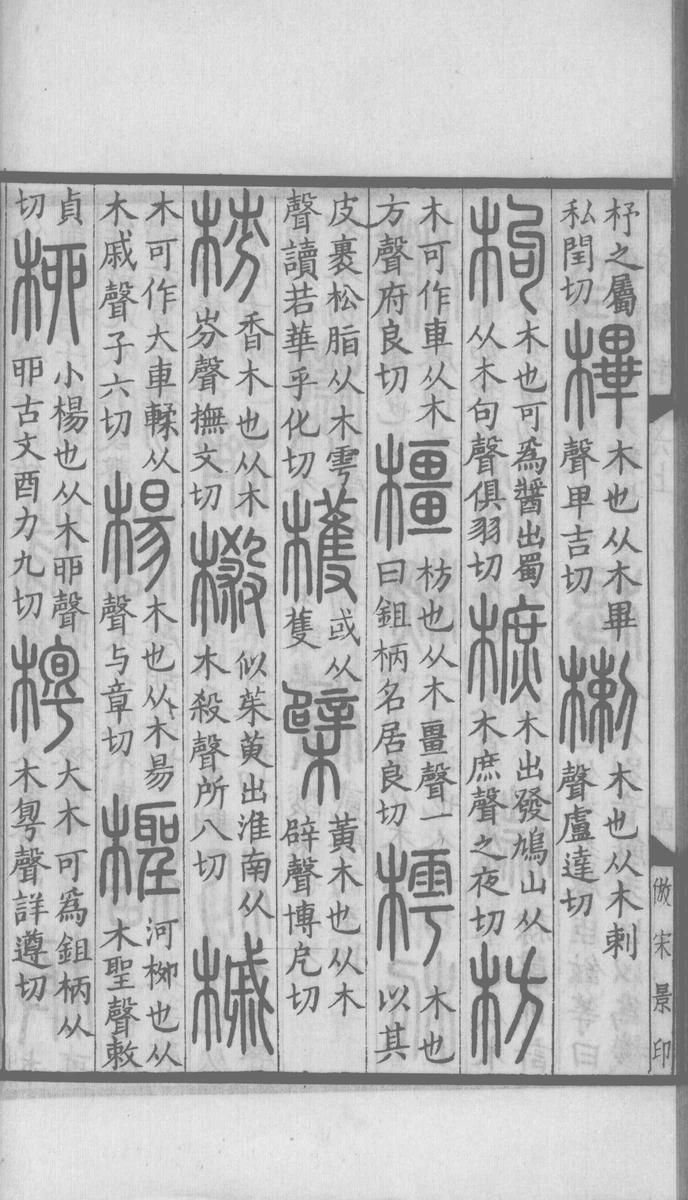 杼之屬私閏切㮿木也从木畢聲卑吉切楋木也从木剌聲盧達切
枸木也可爲醬出蜀从木句聲俱羽切樜木出發鳩山从木庶聲之夜切枋
木可作車从木方聲府良切橿枋也从木畺聲一曰鉏柄名居良切樗木也以其
皮裹松脂从木雩聲讀若華乎化切檴或从蒦檗黃木也从木辟聲博戹切
梤香木也从木岎聲撫文切榝似茱萸出淮南从木殺聲所八切槭
木可作大車輮从木戚聲子六切楊木也从木昜聲与章切檉河柳也从木聖聲敕
貞切柳小楊也从木丣聲丣古文酉力九切大木可爲鉏柄从木粤聲詳遵切
倣宋景印